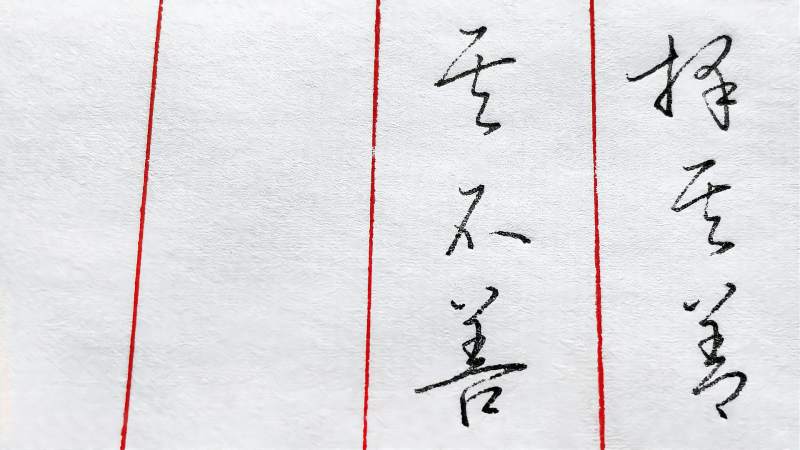 择其善
其不善